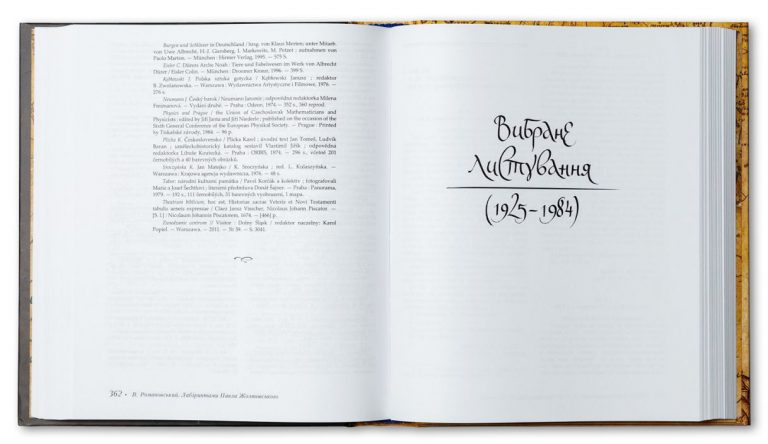 Burgen und Schlösser in Deutschland / hrsg. von Klaus Merten; unter Mitarb.
von Uwe Albrecht, H.-J. Giersberg, I. Markowitz, M. Petzet ; aufnahmen von
Paolo Marton. — München : Hirmer Verlag, 1995. — 575 S.
Eisler C. Dürers Arche Noah : Tiere und Fabelwesen im Werk von Albrecht
Dürer / Eisler Colin. — München : Droemer Knaur, 1996. — 399 S.
Kębłowski J. Polska sztuka gotycka / Kębłowski Janusz ; redaktor
B. Zwolanowska. — Warszawa : Wydawnictwa Artystyczne i Filmowe, 1976. —
276 s.
Neumann J. Český barok / Neumann Jaromír ; odpovědná redaktorka Milena
Freimanová. — Vydání druhé. — Praha : Odeon, 1974. — 352 s., 360 reprod.
Physics and Prague / the Union of Czechoslovak Mathematicians and
Physicists ; edited by Jiří Janta and Jiří Niederle ; published on the occasion of the
Sixth General Conference of the European Physical Society. — Prague : Printed
by Tiskařské závody, 1984. — 96 p.
Plicka K. Československo / Plicka Karel ; úvodní text Jan Tomeš, Ludvík
Baran ; uměleckohistorický katalog sestavil Vlastimil Jiřík ; odpovědná
redaktorka Libuše Kovtuská. — Praha : ORBIS, 1974. — 296 s., včetně 201
černobílých a 40 barevných obrázků.
Sroczyńska K. Jan Matejko / K. Sroczyńska ; red. L. Kołaszyńska. —
Warszawa : Krajowa agencja wydawnicza, 1976. — 48 s.
Tabor: národní kulturní památka / Pavel Korčák a kolektiv ; fotografovali
Marie a Josef Šechtlovi ; literární předmluva Donát Šajner. — Praha : Panorama,
1979. — 192 s., 111 černobílých, 31 barevných vyobrazení, 1 mapa.
Theatrum biblicum, hoc est, Historiae sacrae Veteris et Novi Testamenti
tabulis aeneis expressae / Claez Jansz Visscher, Nicolaus Johann Piscator. —
[S. l.] : Nicolaum Johannis Piscatorem, 1674. — [466] p.
Zwiedzanie centrum // Visitor : Dolny Śląsk / redaktor naczelny: Karol
Popiel. — Warszawa. — 2011. — № 59. — S. 3041.
362 • В. Романовський. Лабіринтами Павла Жолтовського
Вибране
листування
(1925–1984)